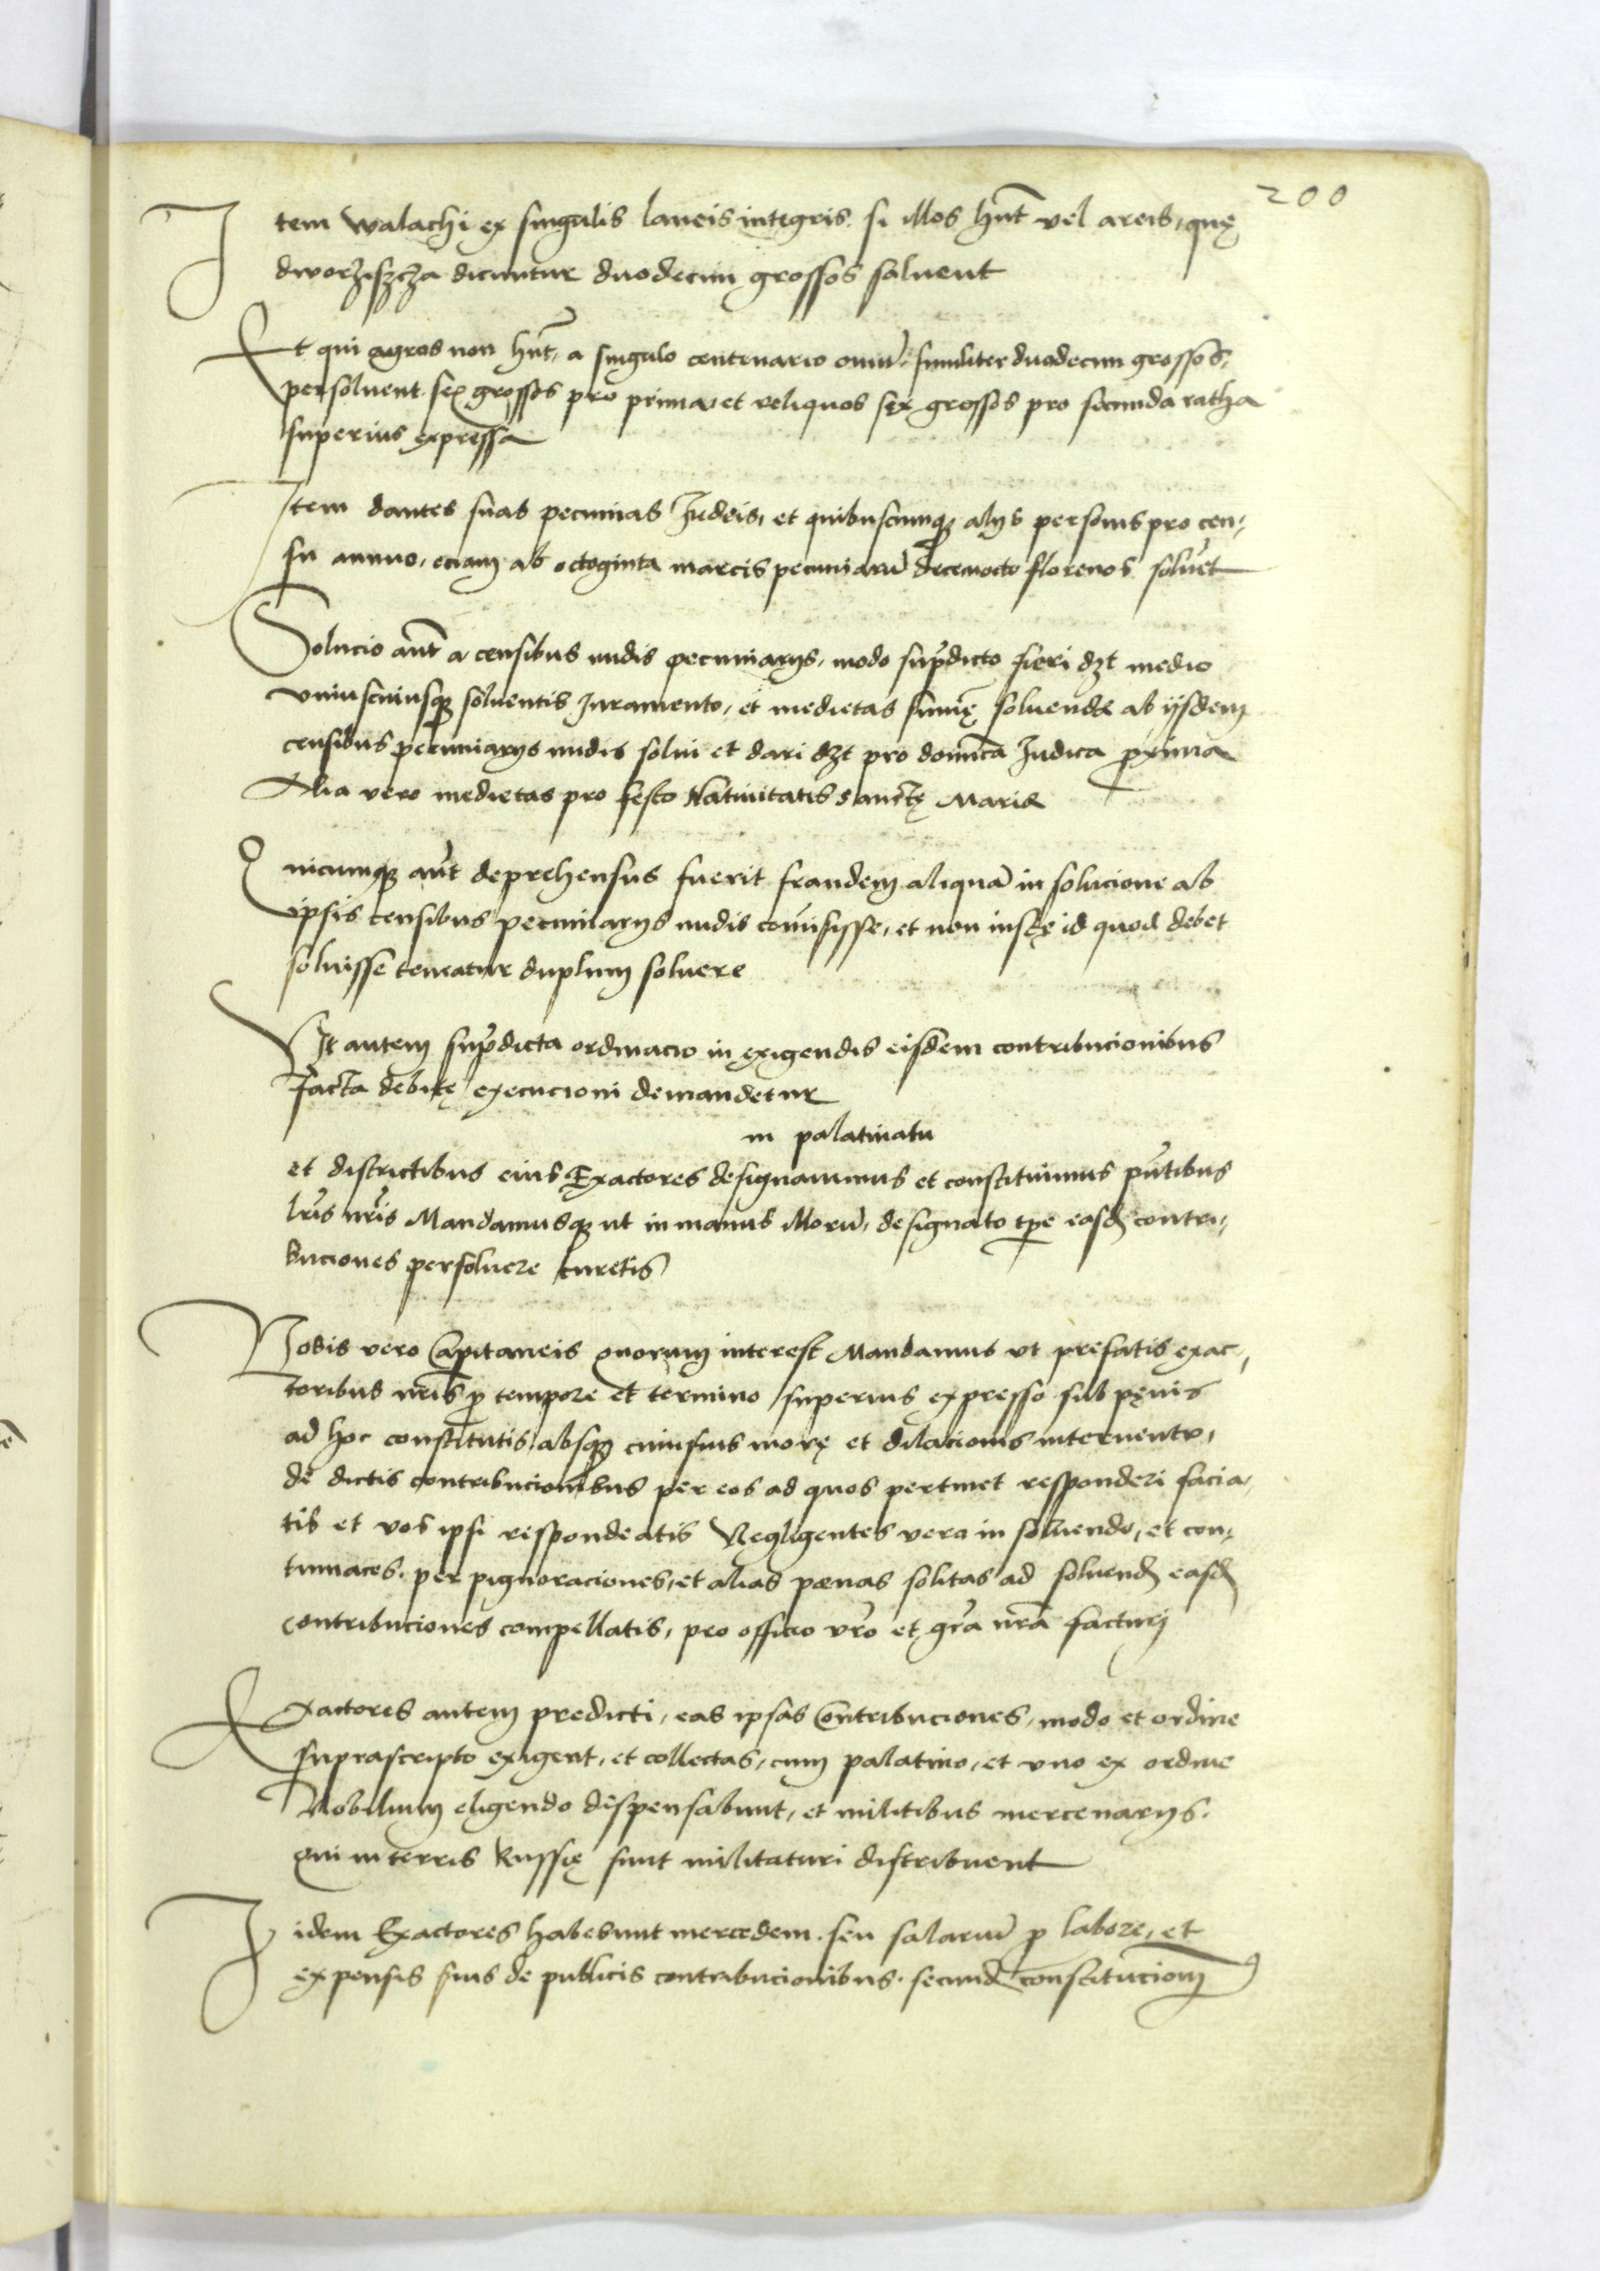 200
Item Walachi ex singulis laneis integris. si illos hnt vel areis, quę
dworziszcza dicuntur duodecim grossos soluent
Et qui agros non hnt, a singulo centenario ouiū. similiter duodecim grossos,
persoluent. sex grossos pro prima, et reliquos sex grossos pro secunda ratha
superius expressa
Item dantes suas pecunias Judeis, et quibuscumq alijs personis pro cen-
su annuo, eciam ab octoginta marcis pecuniarū decemocto florenos soluēt
Solucio aut a censibus nudis pecuniarijs, modo supdicto fieri dzt medio
vniuscuiusq soluentis Juramento, et medietas summę soluendę ab ijsdem
censibus pecuniarijs nudis solui et dari dzt pro dominca Judica proxima
Alia vero medietas pro festo Natiuitatis Sanctę Marię
Quicumq aut deprehensus fuerit fraudem aliquā in solucione ab
ipsis censibus pecuniarijs nudis comisisse, et non iustę id quod debet
soluisse teneatur duplum soluere
Vt autem supdicta ordinacio in exigendis eisdem contribucionibus
facta debitę execucioni demandetur
in palatinatu
et districtibus eius Exactores designauimus et constituimus pntibus
lris nris Mandamusq ut in manus illorū, designato tpe easd contri-
buciones persoluere curetis
Vobis vero Capitaneis quorum interest Mandamus vt prefatis exac-
toribus nris p tempore et termino superius expresso sub pęnis
ad hoc constitutis, absq cuiusuis morę et dilacionis interuentu,
de dictis contribucionibus per eos ad quos pertinet responderi facia-
tis et vos ipsi respondeatis Negligentes vero in soluendo, et con-
tumaces. per pignoraciones, et alias pœnas solitas ad soluend easd
contribuciones compellatis, pro officio vro et gra nra facturi
Exactores autem predicti, eas ipsas Contribuciones, modo et ordine
suprascripto exigent, et collectas, cum palatino, et vno ex ordine
Nobilium eligendo dispensabunt, et militibus mercenarijs.
qui in terris Russię sunt militaturi distribuent
Iidem Exactores habebunt mercedem. seu salariū p labore, et
expensis suis de publicis contribucionibus. secund constitucionem